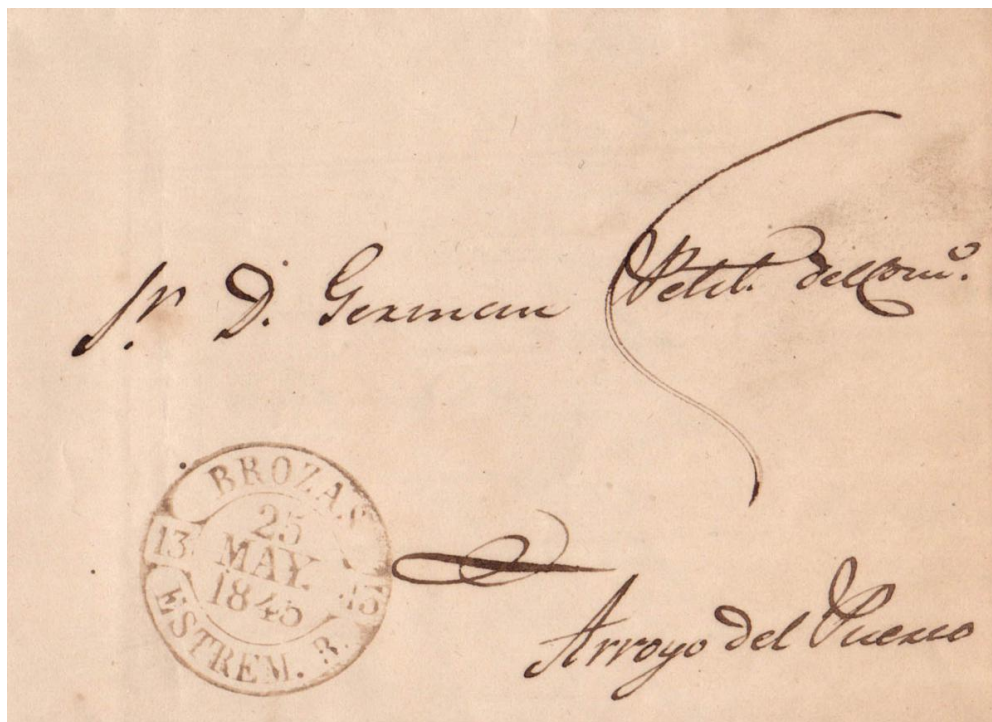 Sr. D. German Petit. del
BROZAS
25
MAY.
1845
13 13
ESTREM. B.
Arroyo del Puerco